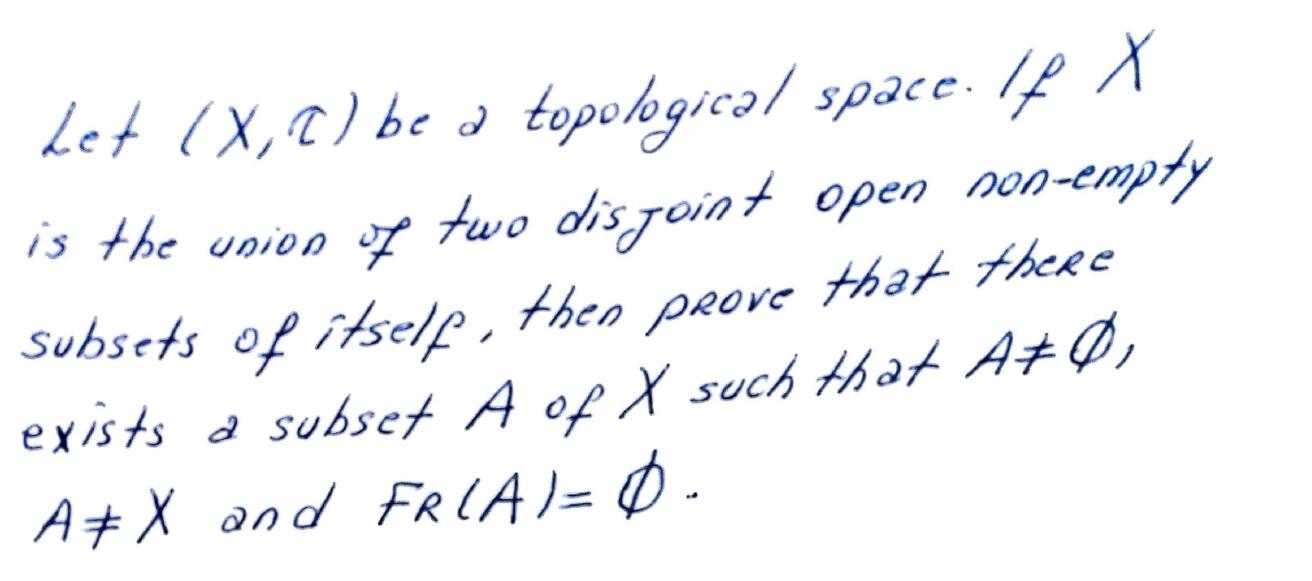 Let (X, τ) be a topological space. If X
is the union of two disjoint open non-empty
subsets of itself, then prove that there
exists a subset A of X such that A ≠ Ø,
A ≠ X and FR(A) = Ø.